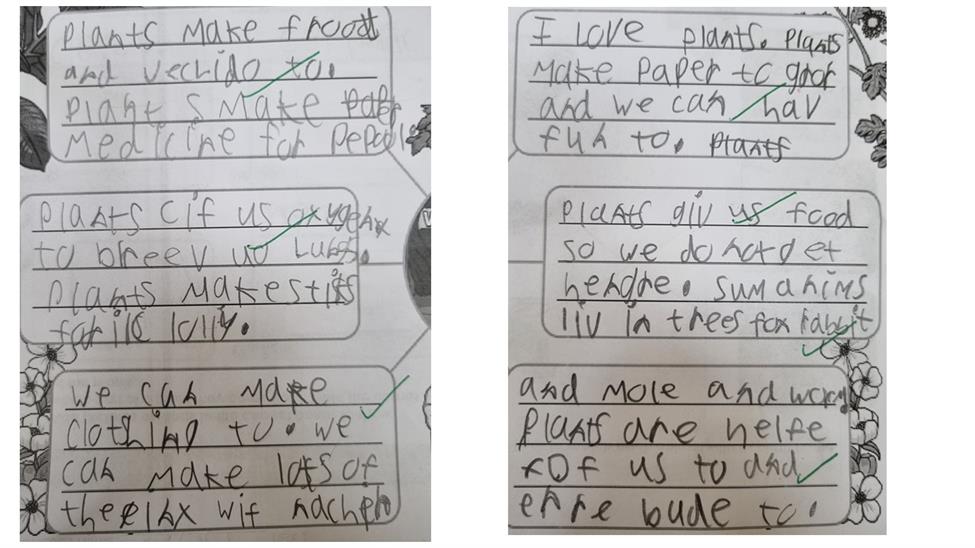 Plants make frood
and vechido to.
Plants make
medicine for pepople
Plants cif us oxygenx
to breev uo lungs.
Plants make stiks
for ilc lolly.
we can make
clothing to. we
can make lots of
theeinx wif nachen
I love plants. Plants
make paper to
and we can hav
fun to. plants
Plants giv us food
so we do not get
hengre. sum anims
liv in trees fox rabbit
and mole and worm
Plants are helfe
for us to and
enre bude to.